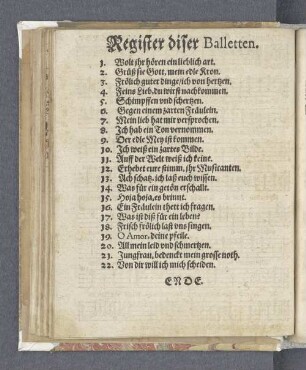 Register diser Balletten.
1. Wolt ihr hören ein lieblich art.
2. Grüß sie Gott, mein edle Kron.
3. Frölich guter dinge/ich von hertzen.
4. Feins Lieb, du wirst nachkommen.
5. Schimpffen vnd schertzen.
6. Gegen einem zarten Fräulein.
7. Mein lieb hat mir versprochen.
8. Ich hab ein Ton vernommen.
9. Der edle Mey ist kommen.
10. Ich weiß ein zartes Bilde.
11. Auff der Welt weiß ich keine.
12. Erhebet eure stimm, ihr Musicanten.
13. Ach schatz, ich laß euch wissen.
14. Was für ein getön erschallt.
15. Hoja hoja, es brinnt.
16. Ein Fräulein thett ich fragen.
17. Was ist diß für ein leben?
18. Frisch frölich last vns singen.
19. O Amor, deine pfeile.
20. All mein leid vnd schmertzen.
21. Jungfrau, bedenckt mein grosse noth.
22. Von dir will ich mich scheiden.
ENDE.